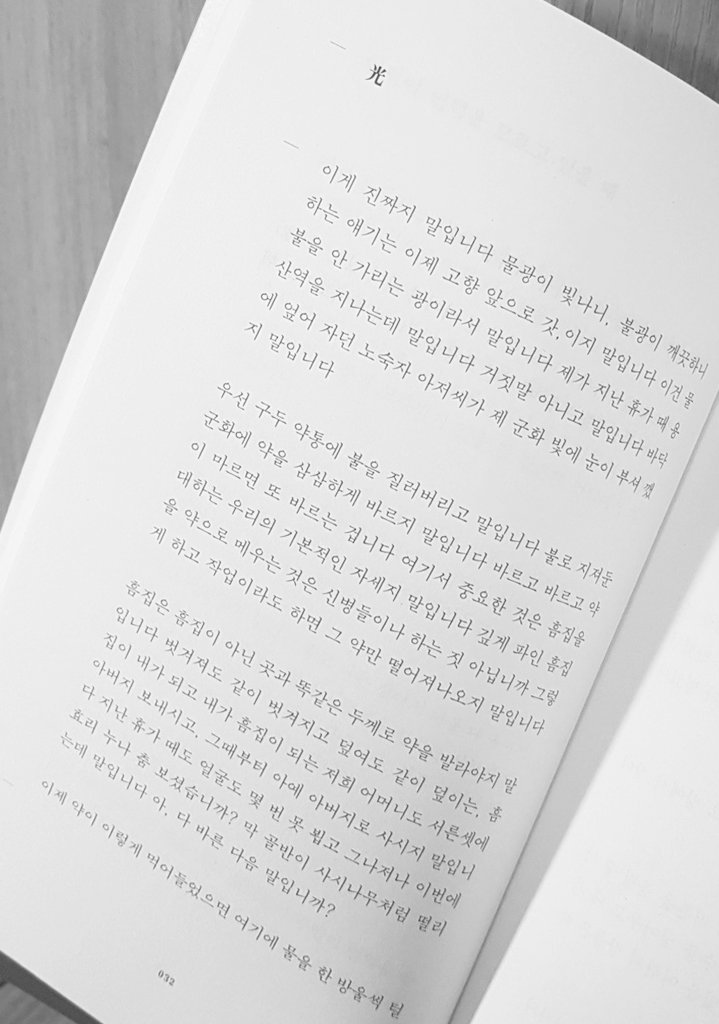 光
이게 진짜지 말입니다 물광이 빛나니, 불광이 깨끗하니
하는 얘기는 이제 고향 앞으로 갓, 이지 말입니다 이건 물
불을 안 가리는 광이라서 말입니다 제가 지난 휴가 때 용
산역을 지나는데 말입니다 거짓말 아니고 말입니다 바닥
에 엎어 자던 노숙자 아저씨가 제 군화 빛에 눈이 부셔 깼
지 말입니다
우선 구두 약통에 불을 질러버리고 말입니다 불로 지져둔
군화에 약을 삼삼하게 바르지 말입니다 바르고 바르고 약
이 마르면 또 바르는 겁니다 여기서 중요한 것은 흠집을
대하는 우리의 기본적인 자세지 말입니다 깊게 파인 흠집
을 약으로 메우는 것은 신병들이나 하는 짓 아닙니까 그렇
게 하고 작업이라도 하면 그 약만 떨어져나오지 말입니다
흠집은 흠집이 아닌 곳과 똑같은 두께로 약을 발라야지 말
입니다 벗겨져도 같이 벗겨지고 덮여도 같이 덮이는, 흠
집이 내가 되고 내가 흠집이 되는 저희 어머니도 서른셋에
아버지 보내시고, 그때부터 아예 아버지로 사시지 말입니
다 지난 휴가 때도 얼굴도 몇 번 못 뵙고 그나저나 이번에
효리 누나 춤 보셨습니까? 막 골반이 사시나무처럼 떨리
는데 말입니다 아, 다 바른 다음 말입니까?
이제 약이 이렇게 먹어들었으면 여기에 물을 한 방울씩 털
032